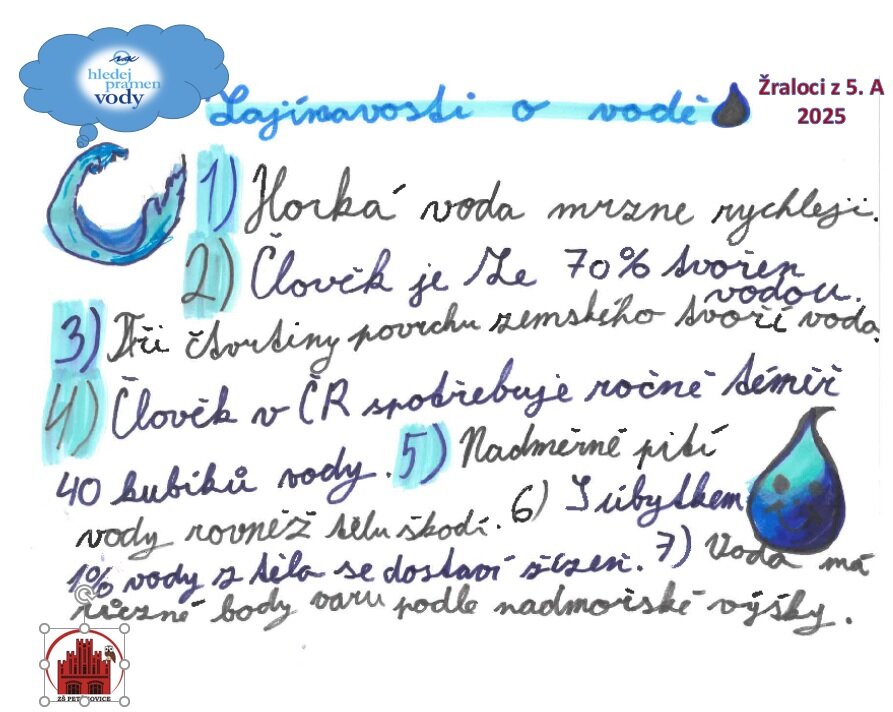 hledej
pramen
vody
Žraloci z 5. A
2025
Zajímavosti o vodě
1) Horká voda mrzne rychleji.
2) Člověk je ze 70% tvořen
vodou.
3) Tři čtvrtiny povrchu zemského tvoří voda.
4) Člověk v ČR spotřebuje ročně téměř
40 kubíků vody. 5) Nadměrné pití
vody rovněž tělu škodí. 6) S úbytkem
1% vody z těla se dostaví žízeň. 7) Voda má
různé body varu podle nadmořské výšky.